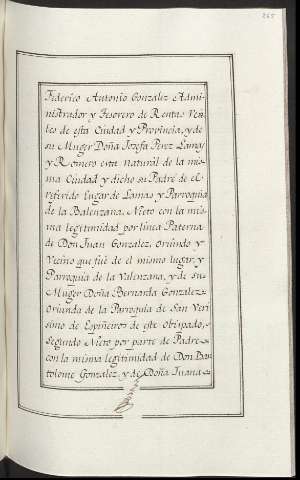 265
Federico Antonio Gonzalez Admi-
nistrador y Tesorero de Rentas
les de esta Ciudad y Provincia, y de
su Muger Doña Josefa Perez Lamas
y Romero esta Natural de la mis-
ma Ciudad y dicho su Padre de el
referido Lugar de Lamas y Parroquia
de la Balenzana, Nieto con la mis-
ma legitimidad por linea Paterna
de Don Juan Gonzalez, oriundo y
Vecino que fué de el mismo lugar, y
Parroquia de la Valenzana, y de su
Muger Doña Bernarda Gonzalez
Oriunda de la Parroquia de San Veri
simo de Espiñeiros de este Obispado,
Segundo Nieto por parte de Padre
con la misma legitimidad de Don Bar
tolome Gonzalez, y de Doña Juana